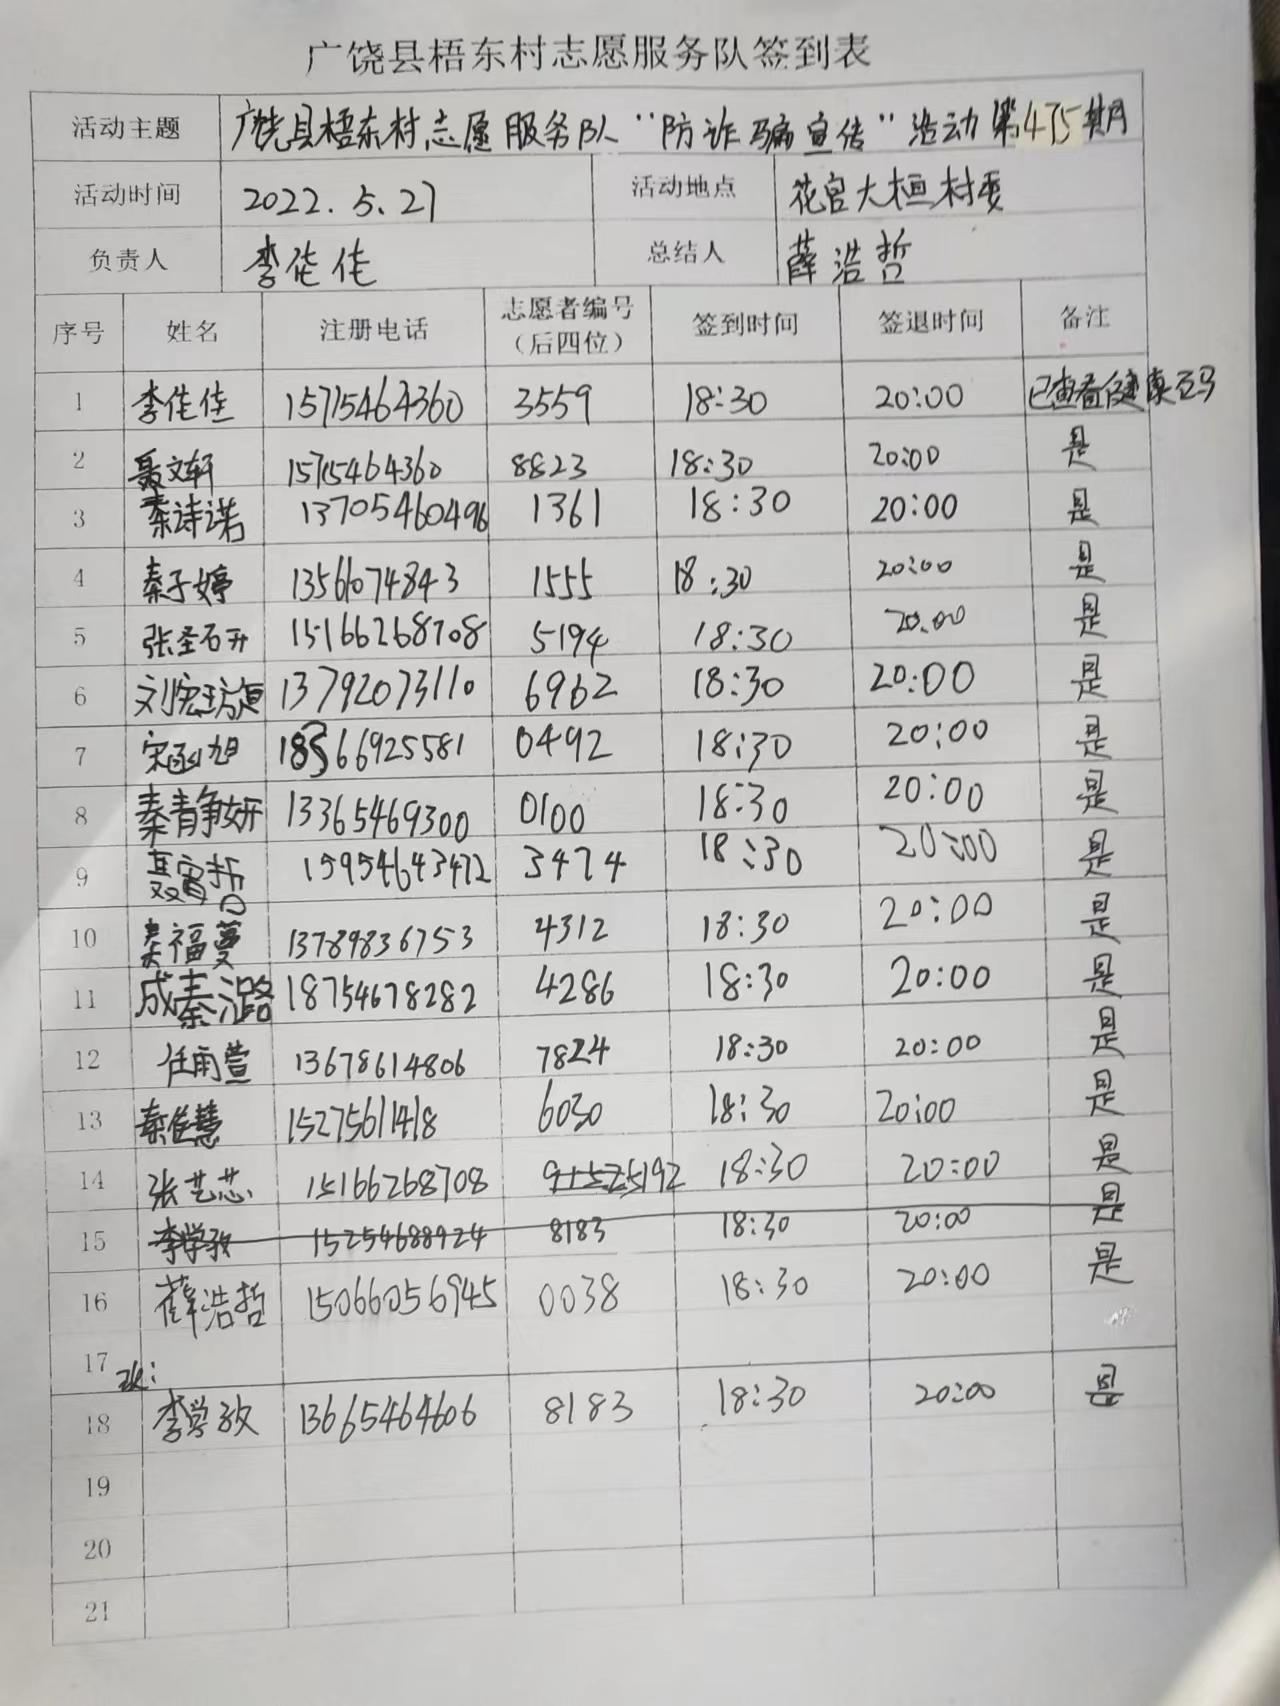 广饶县梧东村志愿服务队签到表
活动主题 广饶县梧东村志愿服务队“防诈骗宣传”活动第475期
活动时间 2022.5.27 活动地点 花官大桓村委
负责人 李佳佳 总结人 薛浩哲
序号 姓名 注册电话 志愿者编号（后四位） 签到时间 签退时间 备注
1 李佳佳 15715464360 3559 18:30 20:00 已查看健康码
2 聂文轩 15715464360 8823 18:30 20:00 是
3 秦诗诺 13705460496 1361 18:30 20:00 是
4 秦子婷 1356074843 1555 18:30 20:00 是
5 张圣研 15166268708 5194 18:30 20:00 是
6 刘宏 13792073110 6962 18:30 20:00 是
7 宋函旭 18366925581 0492 18:30 20:00 是
8 秦青妍 13365469300 0100 18:30 20:00 是
9 聂哲 15954643472 3474 18:30 20:00 是
10 秦福蔓 13789836753 4312 18:30 20:00 是
11 成秦潞 18754678282 4286 18:30 20:00 是
12 任雨萱 13678614806 7824 18:30 20:00 是
13 秦佳慧 15275611418 6030 18:30 20:00 是
14 张艺芯 15166268708 5192 18:30 20:00 是
15 李学孜 15254688924 8183 18:30 20:00 是
16 薛浩哲 15066056945 0038 18:30 20:00 是
17
18 李学孜 13665464606 8183 18:30 20:00 是
19
20
21